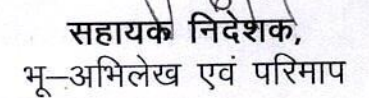 सहायक निदेशक,
भू–अभिलेख एवं परिमाप